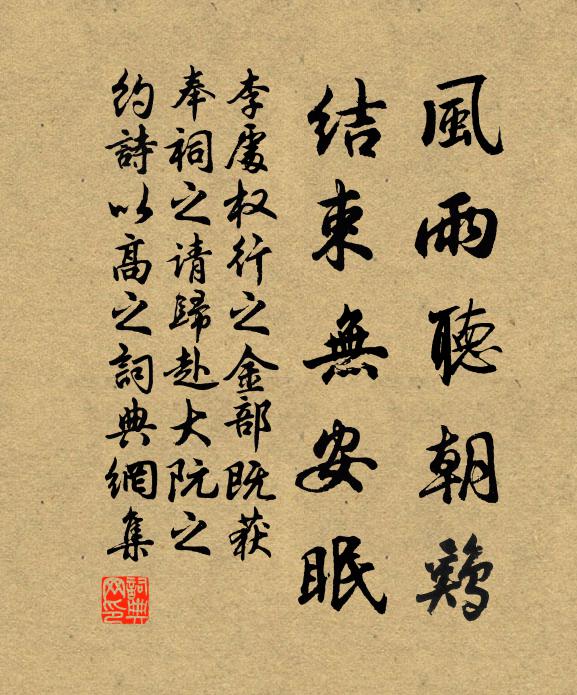 風雨聽朝鷄
結束無安眠
李處权行之金部既获
奉祠之请歸赴大阮之
約詩以高之詞典網集
詞典网印